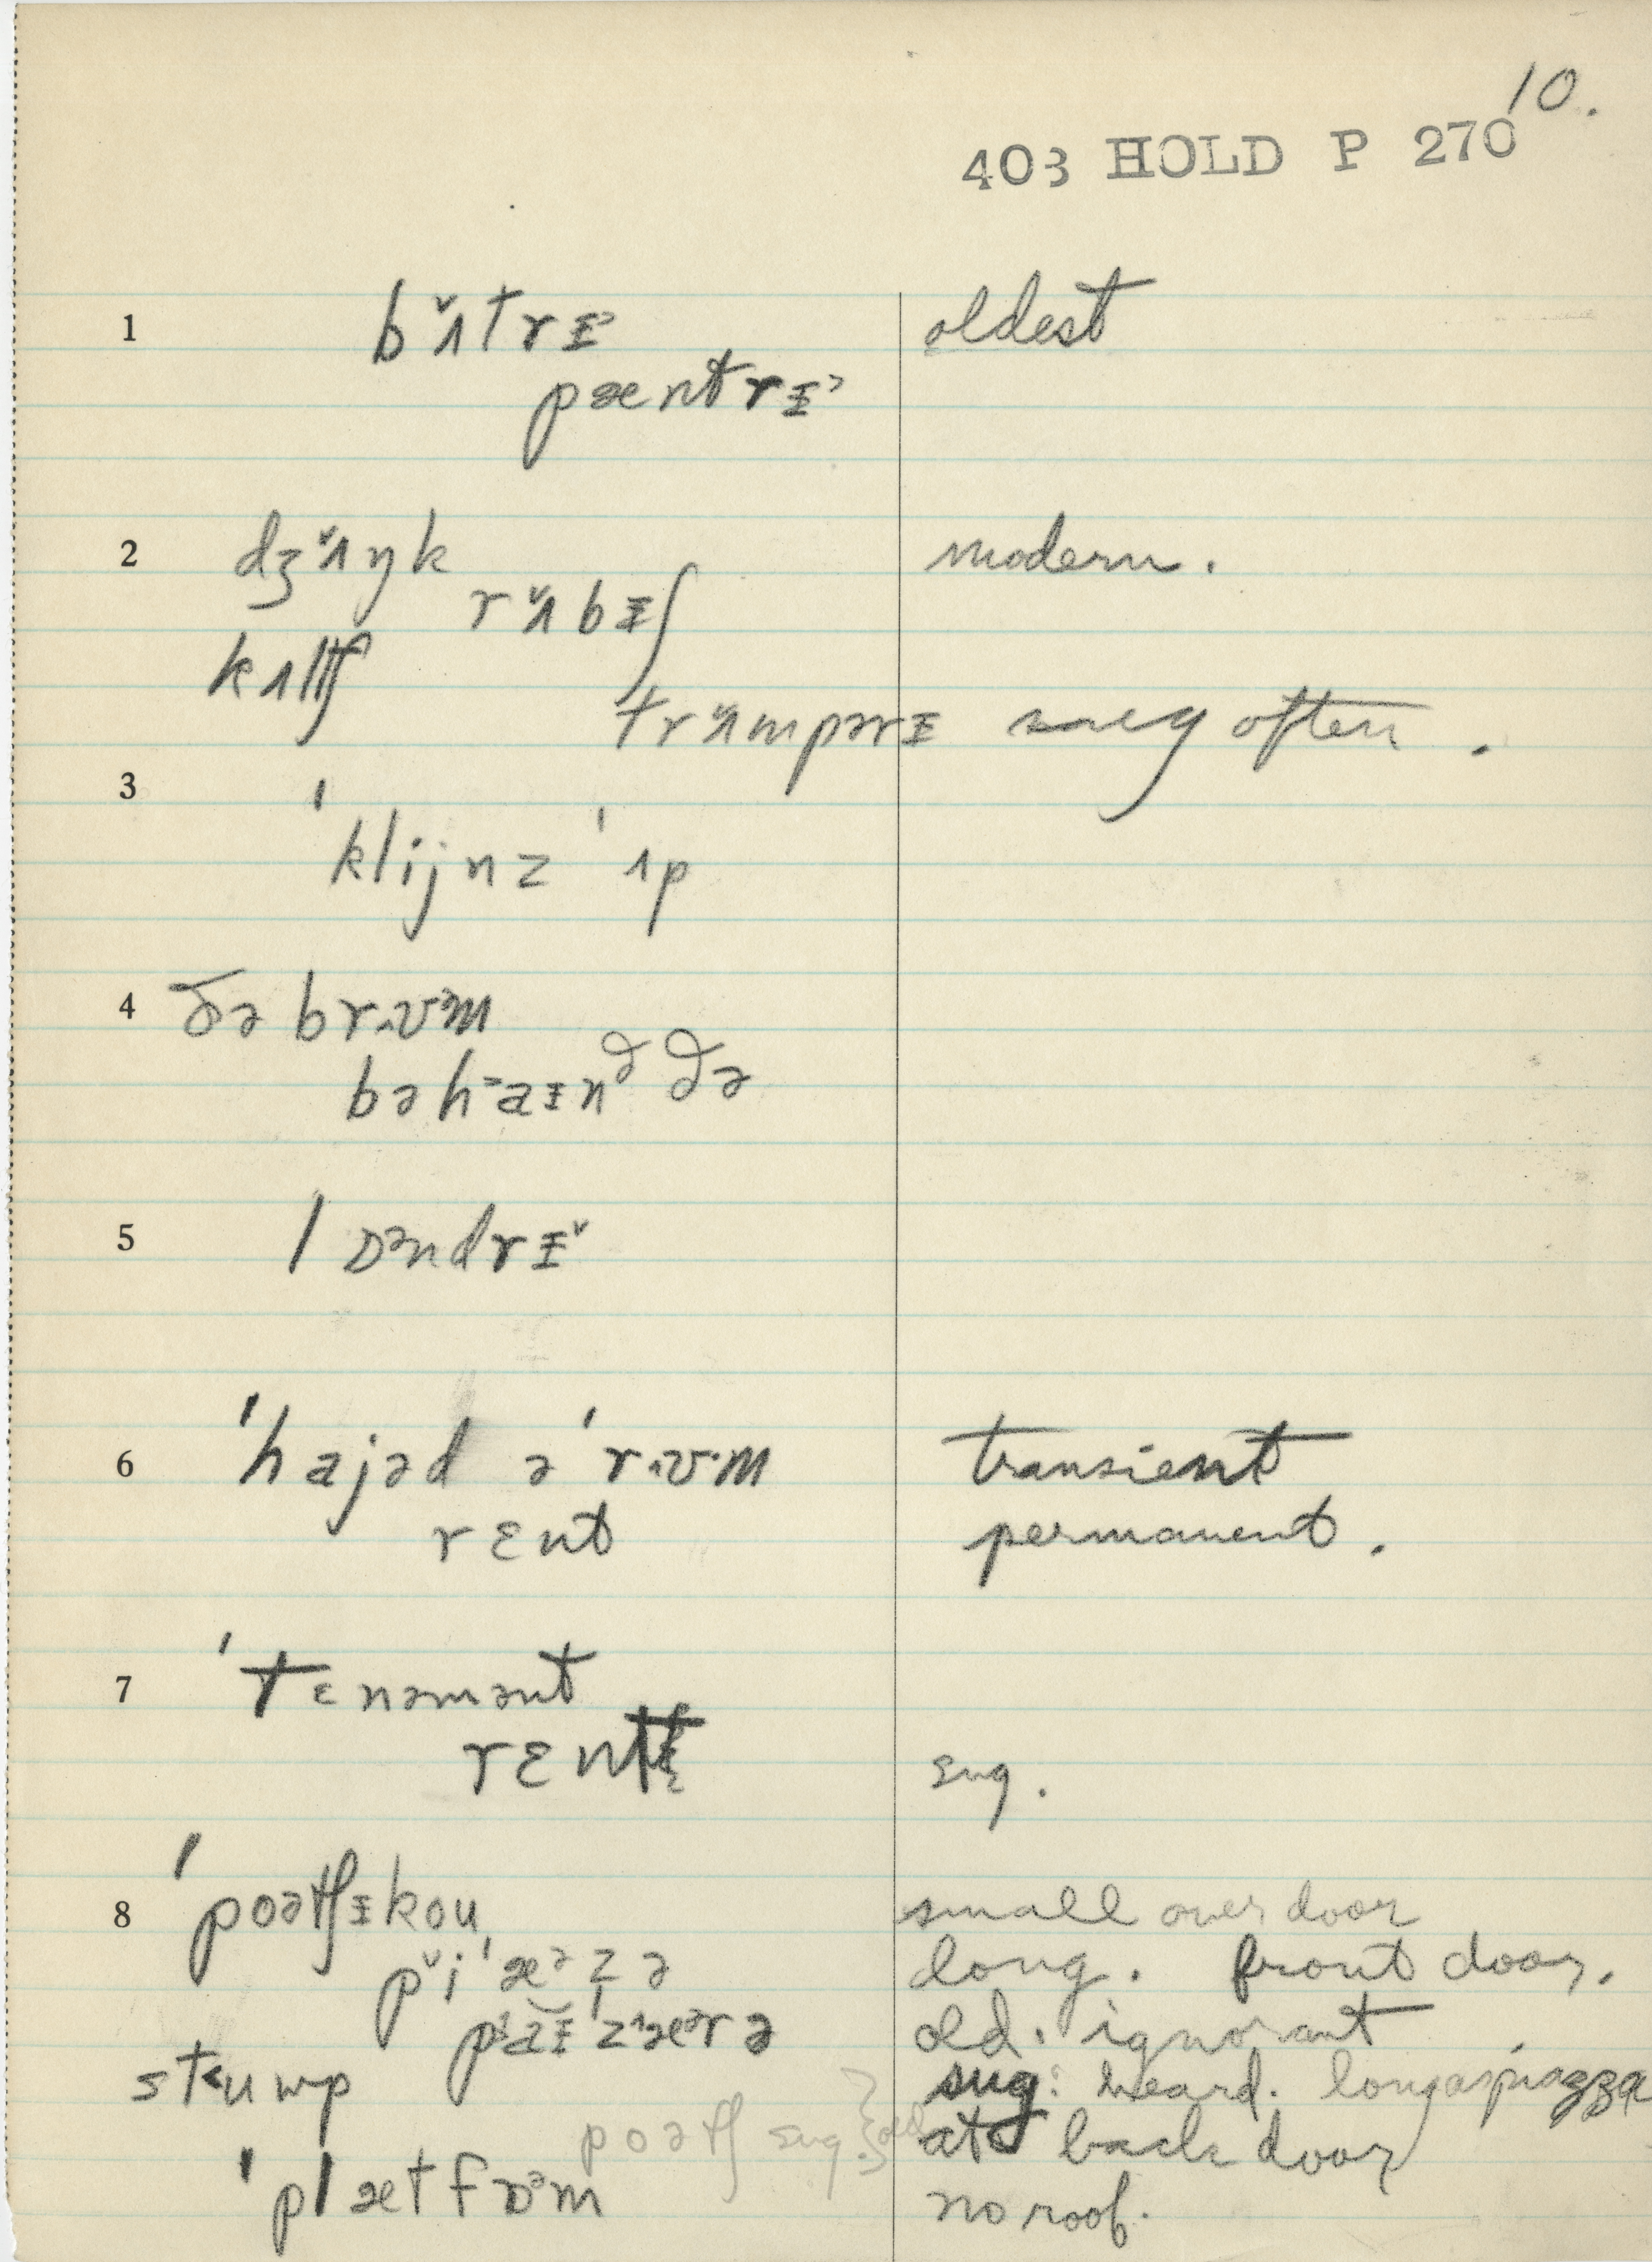 10.
403 HOLD P 270
1 bʌ̌trɪ˃ oldest
pæntrɪ˃
2 dʒʌ̌ŋk modern.
rʌ̌bɪʃ
kʌltʃ
trʌ̌mpərɪ say often.
3 ˈklijnz ˈʌp
4 ðə brᴧʊᵊm
bəh˃aɪnᵈ ðə
5 lɒᵊndrɪ˅
6 ˈhajəd ə ˈrᴧʊ·m transient
rɛnt permanent.
7 ˈtɛnəmənt
rɛnt sug.
8 ˈpoətʃɪkou small over door
pˇiˈæᵊzə long. front door.
old. ignorant
stʉmp sug: heard. long as piazza
poətʃ sug. } old at back door
ˈplætfɒᵊm no roof.